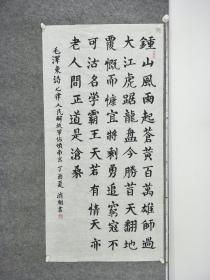 鍾山風雨起蒼黃百萬雄師過
大江虎踞龍盤今勝昔天翻地
覆慨而慷宜將剩勇追窮寇不
可沽名學霸王天若有情天亦
老人間正道是滄桑
毛澤東詩七律人民解放軍佔領南京 丁酉夏 書